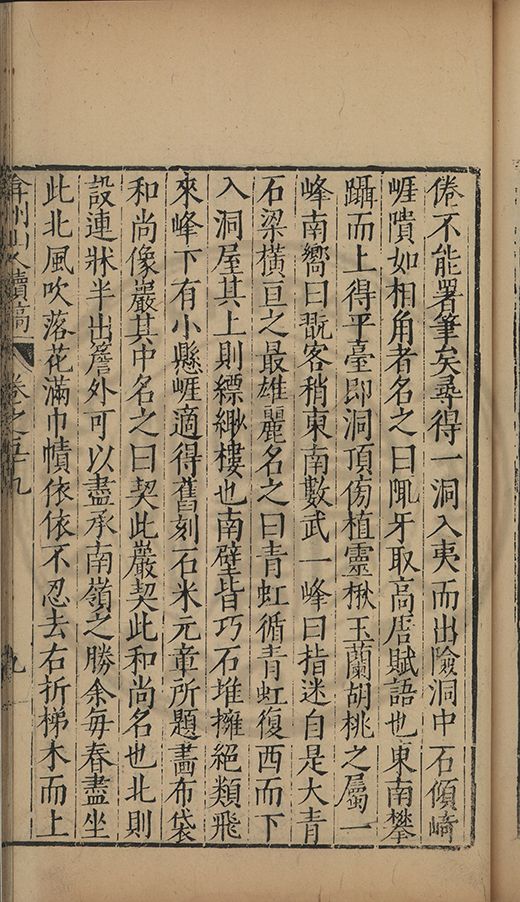 倦不能署筆矣尋得一洞入夷而出險洞中石傾﨑
崕嘳如相角者名之曰䶥牙取高唐賦語也東南攀
躡而上得平臺即洞頂傍植靈楸玉蘭胡桃之屬一
峰南嚮曰翫客稍東南數武一峰曰指迷自是大青
石梁橫亘之最雄麗名之曰青虹循青虹復西而下
入洞屋其上則縹緲樓也南壁皆巧石堆擁絕類飛
來峰下有小懸崕適得舊刻石米元章所題畵布袋
和尚像嚴其中名之曰契此巖契此和尚名也北則
設連牀半出簷外可以盡承南嶺之勝余每春盡坐
此北風吹落花滿巾幘依依不忍去右折梯木而上
弇州山人續稿
卷之五十九
九